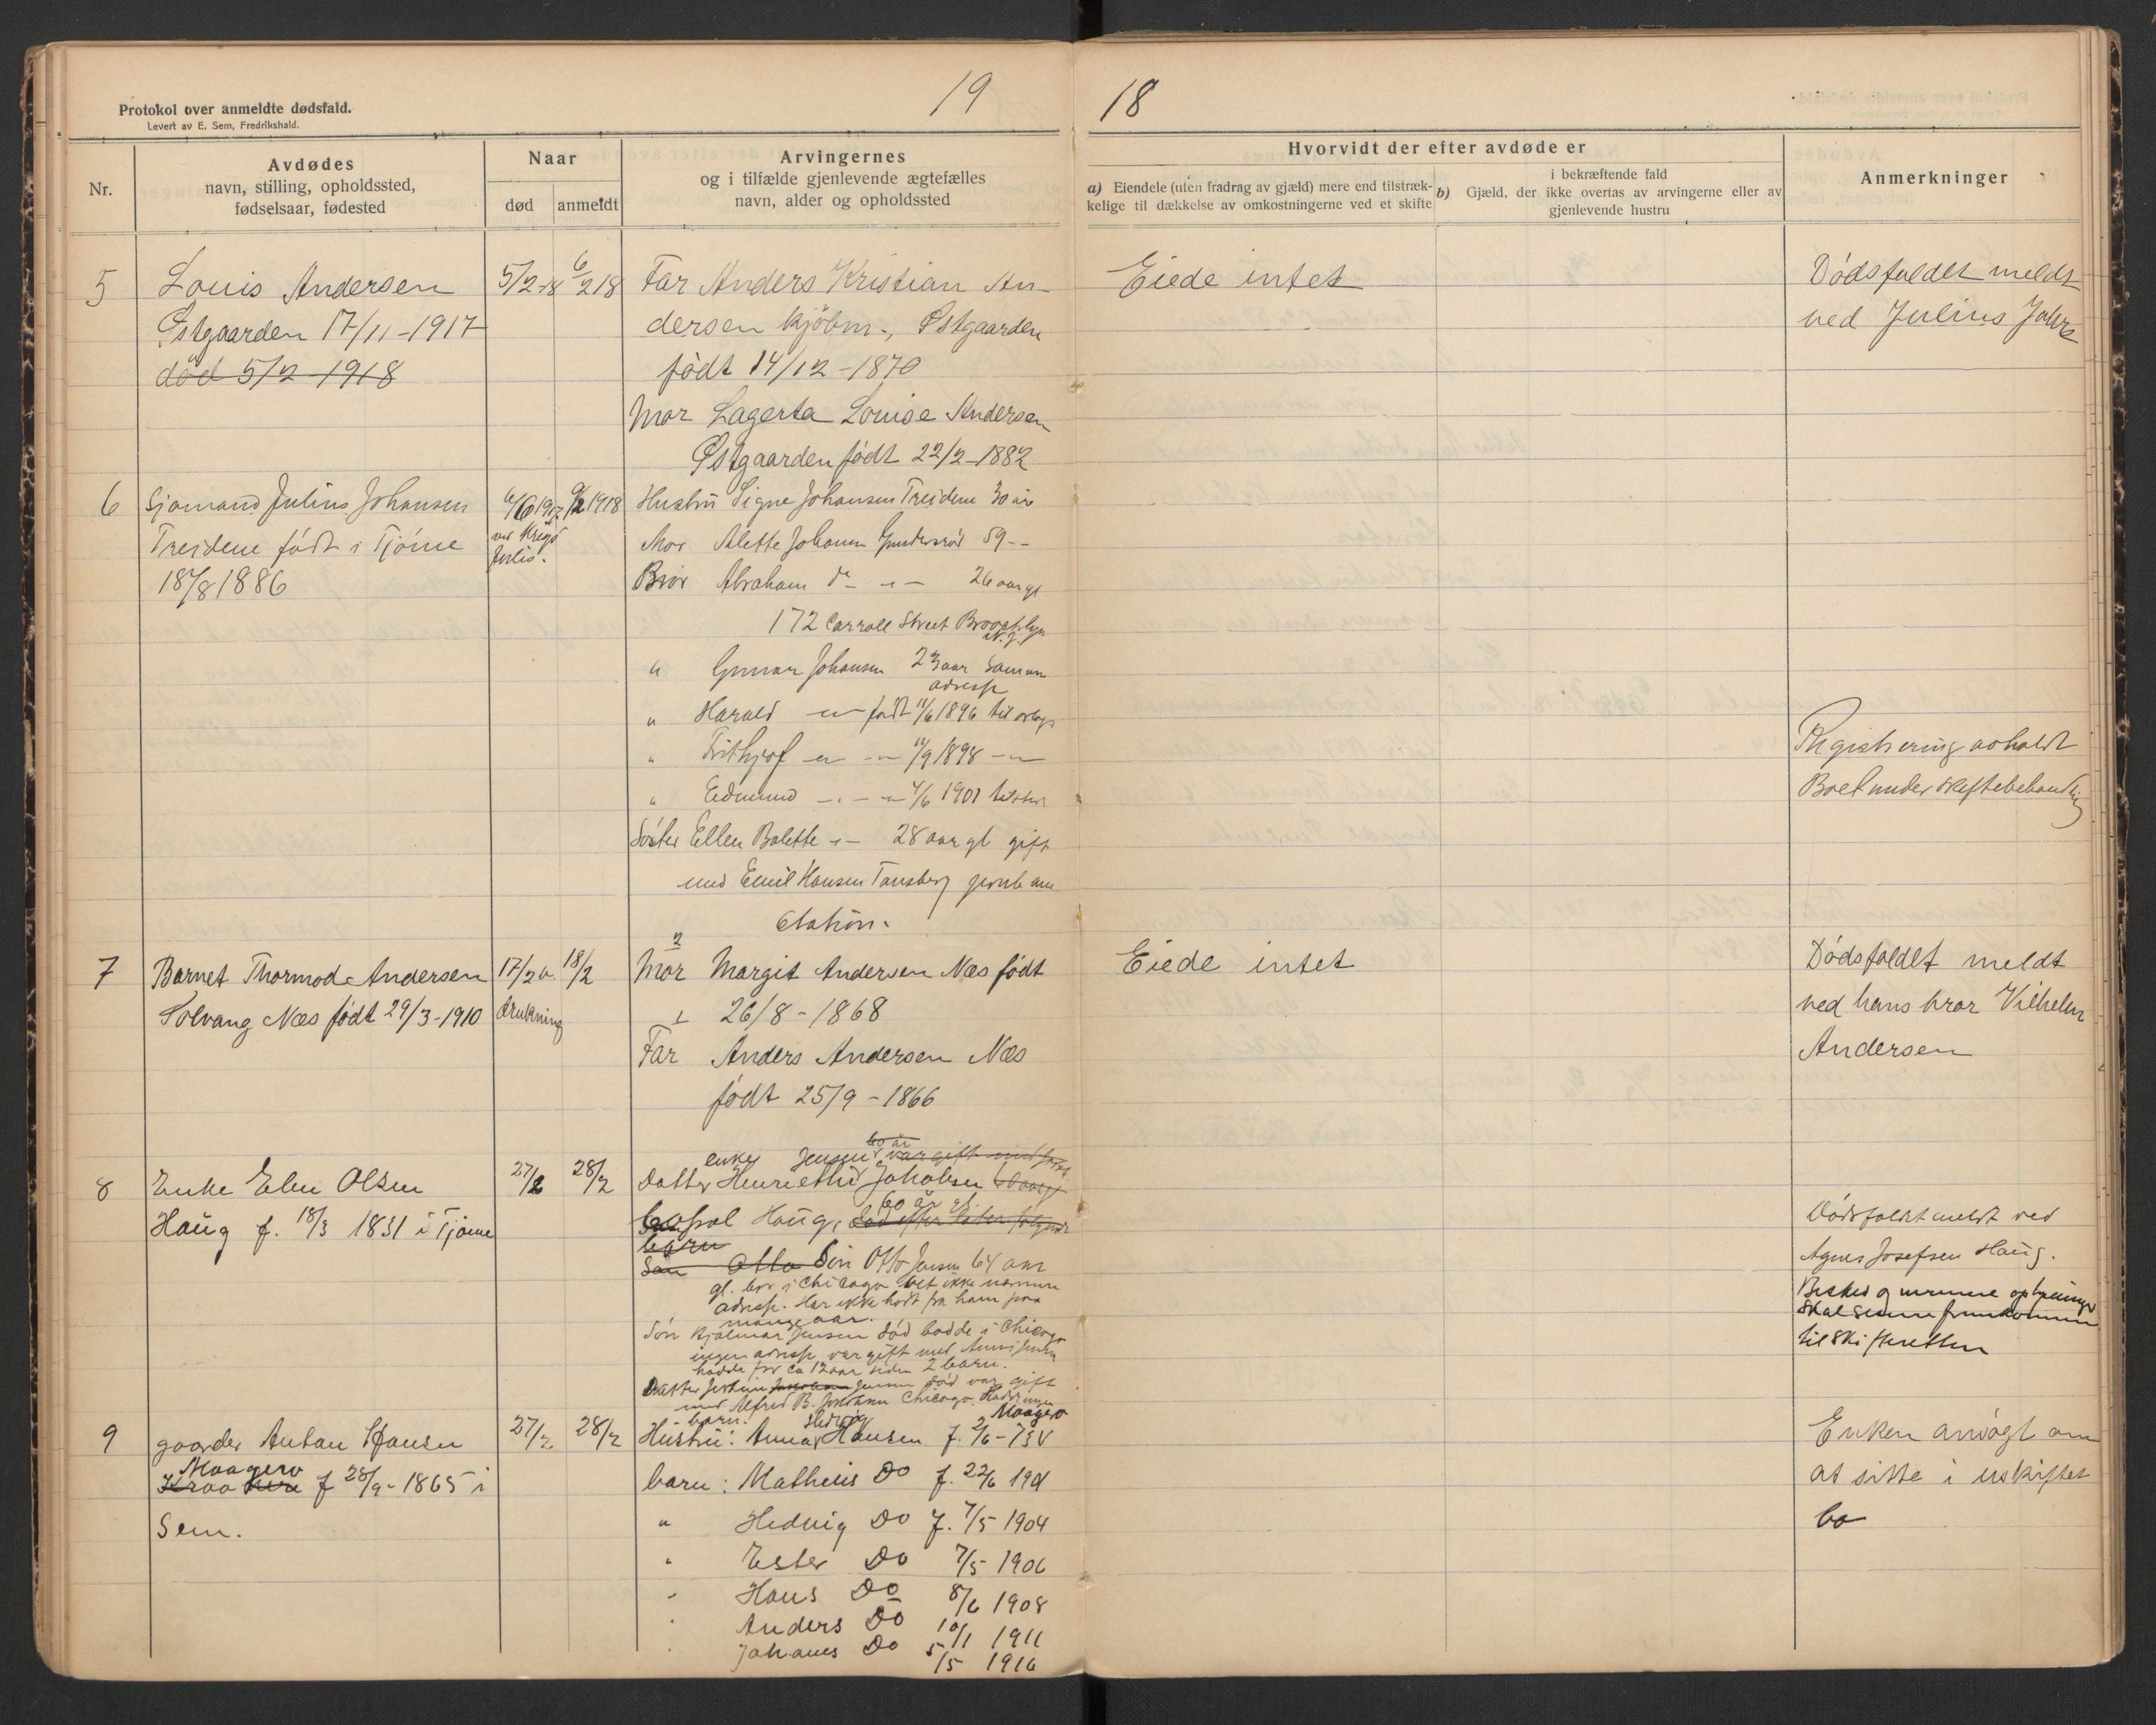 19
18
Protokol over anmeldte dødsfald.
Levert av E. Sem, Fredrikshald.
Nr.
Avdødes
navn, stilling, opholdssted,
fødselsaar, fødested
Naar
død
anmeldt
Arvingernes
og i tilfælde gjenlevende ægtefælles
navn, alder og opholdssted
Hvorvidt der efter avdøde er
a) Eiendele (uten fradrag av gjæld) mere end tilstræk-
kelige til dækkelse av omkostningerne ved et skifte
i bekræftende fald
b) Gjæld, der ikke overtas av arvingerne eller av
gjenlevende hustru
Anmerkninger
5
Louis Andersen
Østgaarden 17/11-1917
død 5/2-1918
5/2-18
6/2 18
Far Anders Kristian An-
dersen kjöbm., Østgaarden
født 14/12-1870
Mor Lagerta Louise Andersen
Østgaarden født 22/2-1882
Eiede intet
Dødsfaldet meldt
ved Julius
6
Sjømand Julius Johansen
Treidene født i Tjöme
18/8 1886
ved Krigs
forlis.
Hustru Signe Johansen Treidene 30 aar
Mor Alette Johansen 59 --
Bror Abraham do - " - 26 aar gl
172 Carroll Street Brooklyn
N.J.
" Gunnar Johansen 23 aar Samme
adresse
" Harald - " - født 11/6 1896 til orlogs
" Frithjof - " - " 11/9 1898 - " -
" Edmund - " - " 4/6 1901 tilsjøs
Søster Ellen Balette - " - 28 aar gl gift
med Emil Hansen Tønsberg
Station.
Registrering avholdt
Boet under skiftebehandling
7
Barnet Thormod Andersen
Solvang Næs født 29/3-1910
17/2 v.
drukning
18/2
2
Mor Margit Andersen Næs født
26/8-1868
1
Far Anders Andersen Næs
født 25/9-1866
Eiede intet
Dødsfaldet meldt
ved hans bror Vilhelm
Andersen
8
Enke Elen Olsen
Haug f. 18/3 1831 i Tjøme
27/2
28/2
60 år
enke Jensen var gift med
Datter Henriette Jakobsen
60 år gl.
bopæl Haug, død efter later følgende
barn
Søn Otto Søn Otto Jensen 64 aar
gl. bor i Chicago vet ikke nærmere
adresse. Har ikke hørt fra ham paa
mange aar.
Søn Hjalmar Jensen død bodde i Chicago
ingen adresse var gift med
hadde for ca 12 aar siden 2 barn.
Datter Jensen død var gift
med Alfred B. Chicago. Hadde ingen
barn.
Dødsfaldet meldt ved
Agnes Josefsen Haug.
Besked og nærmere oplysninger
skal senere fremkomme
til Skifteretten
9
gaardbr Anton Hansen
Maagerø
f 28/9-1865 i
Sem.
27/2
28/2
Hedvig
Maagerø
Hustru: Anna Hansen f. 2/6-
barn: Matheus Do f. 22/6 1901
" Hedvig Do f. 7/5 1904
" Ester Do 7/5 1906
" Hans Do 8/6 1908
" Anders Do 10/1 1911
" Johanes Do 5/5 1916
Enken ansøgt om
at sitte i uskiftet
bo